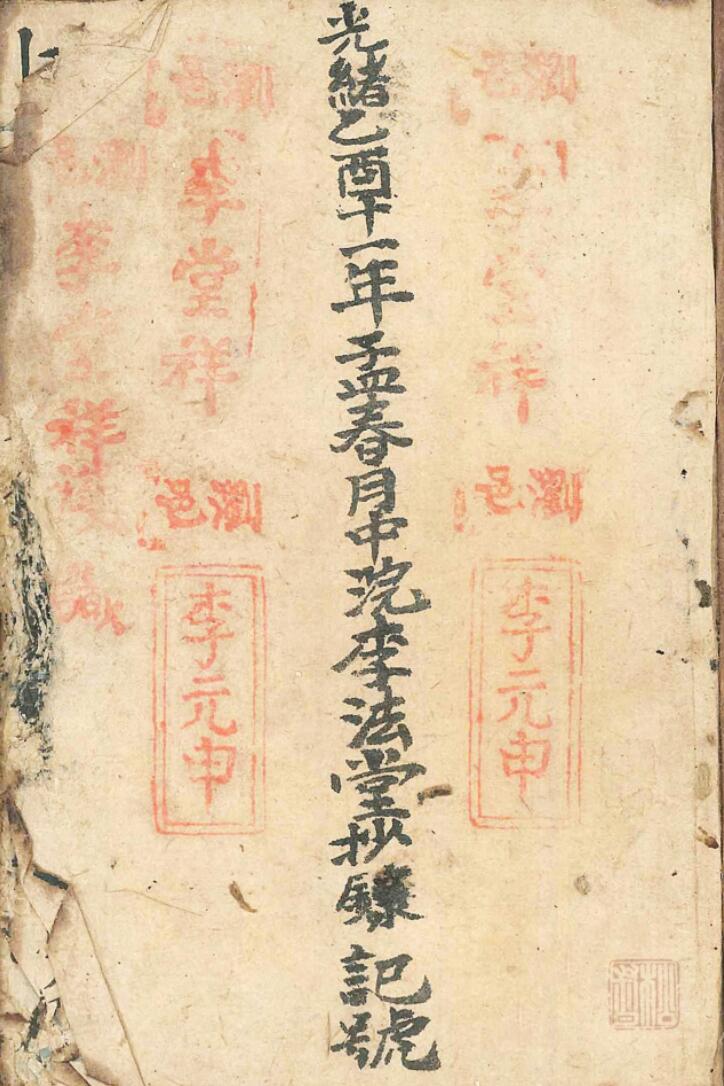 瀏邑
李堂祥
瀏邑
李元申
光緒乙酉十一年孟春月中浣李法堂抄錄 記號
瀏邑
李堂祥
瀏邑
李元申
瀏
李堂祥